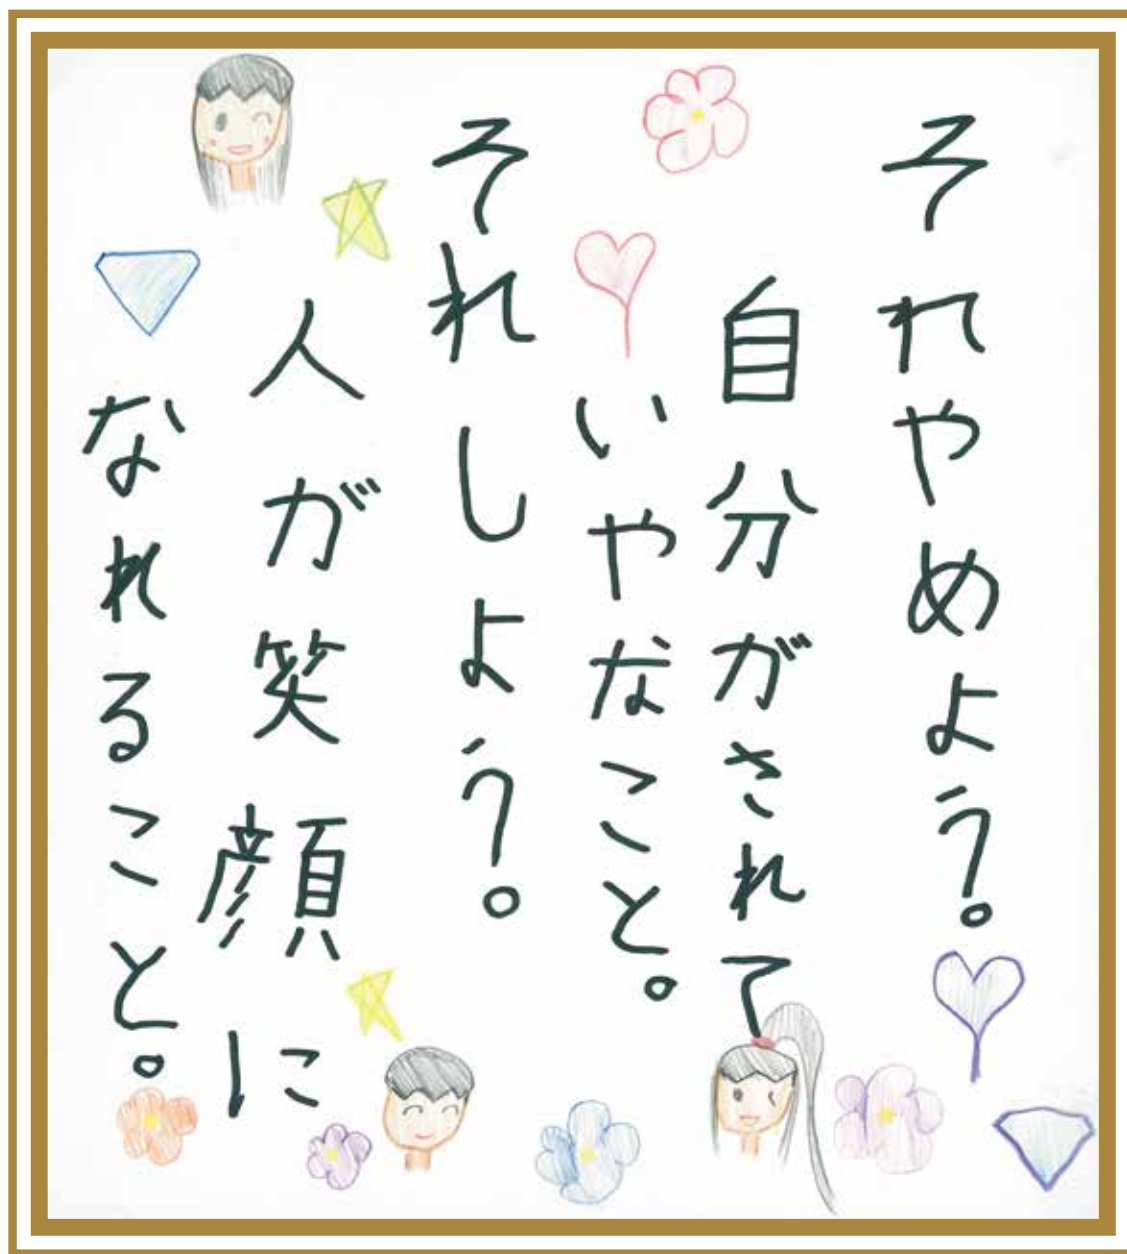 それやめよう。
自分がされて
いやなこと。
それしよう。
人が笑顔に
なれること。